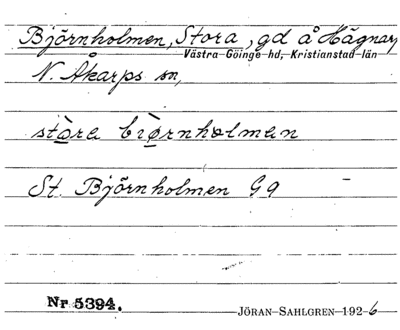 Björnholmen, Stora, gd å Hägnar
Västra Göinge hd, Kristianstad län
N. Åkarps sn,
stora biørnholman
St. Björnholmen G9 –
Nr 5394.
JÖRAN SAHLGREN 1926